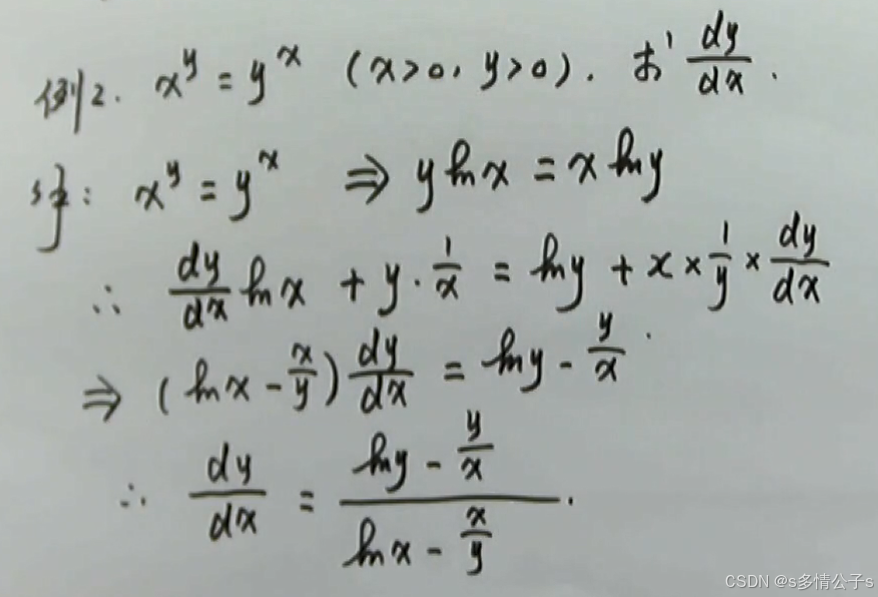 例2. x^y = y^x (x>0, y>0). 求 dy/dx.
解: x^y = y^x ⇒ y ln x = x ln y
∴ dy/dx ln x + y · 1/x = ln y + x × 1/y × dy/dx
⇒ (ln x - x/y) dy/dx = ln y - y/x.
∴ dy/dx = (ln y - y/x) / (ln x - x/y).
CSDN @s多情公子s